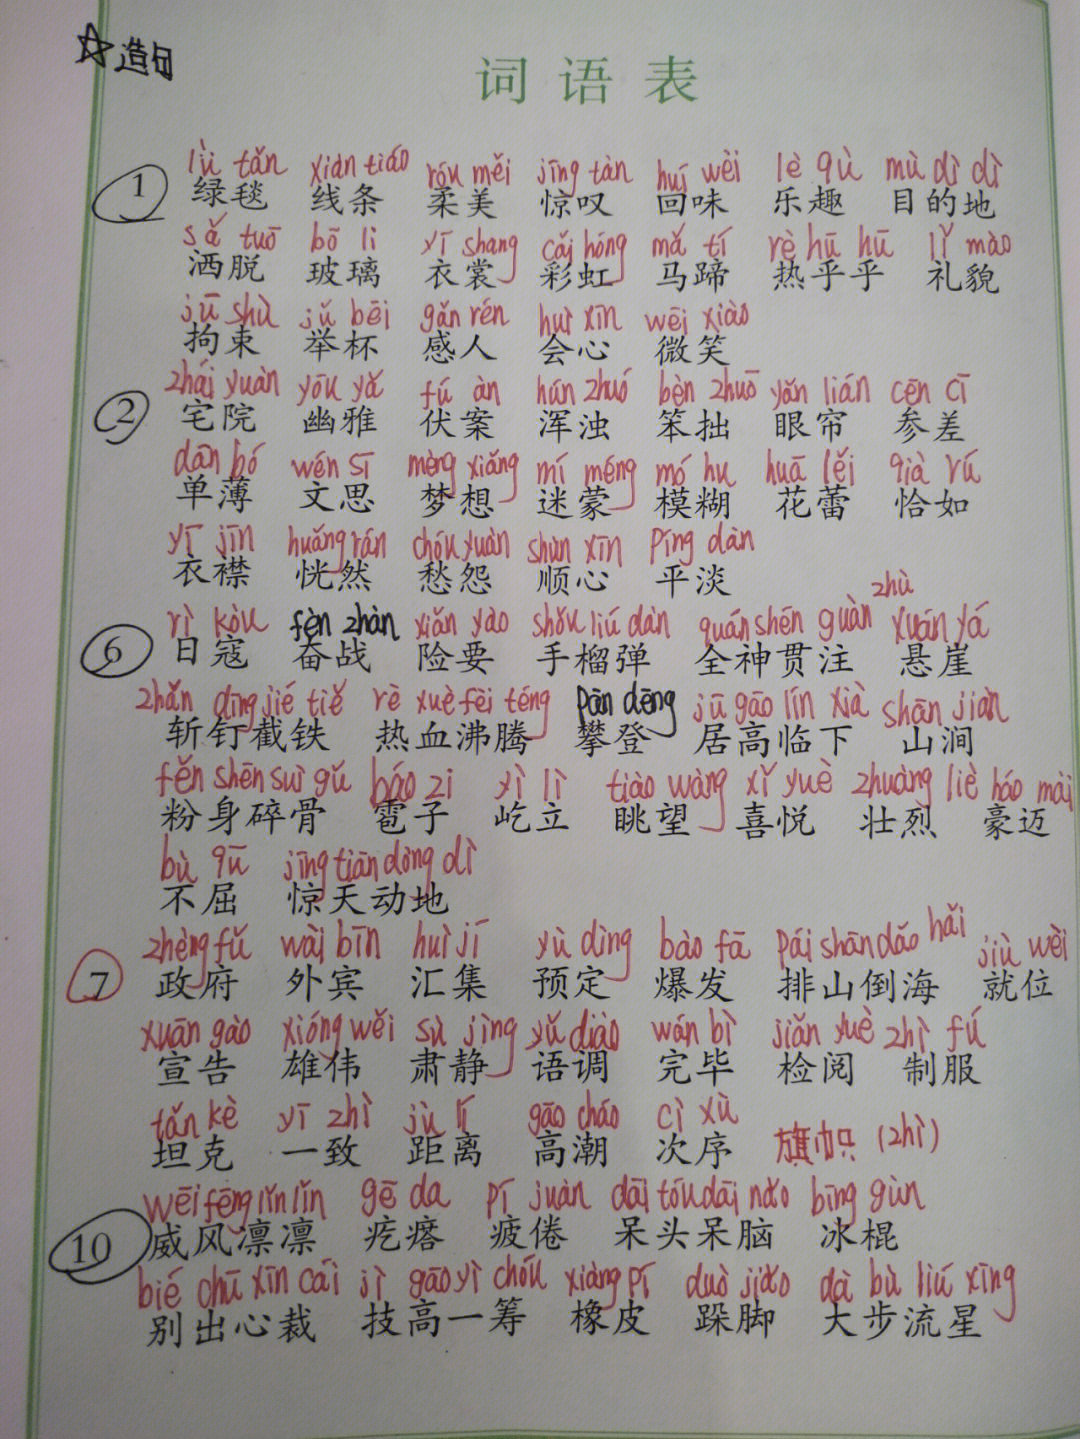 ☆造句
词语表
lǜ tǎn xiàn tiáo róu měi jīng tàn huí wèi lè qù mù dì dì
1 绿毯 线条 柔美 惊叹 回味 乐趣 目的地
sǎ tuō bō li yī shang cǎi hóng mǎ tí rè hū hū lǐ mào
洒脱 玻璃 衣裳 彩虹 马蹄 热乎乎 礼貌
jū shù jǔ bēi gǎn rén huì xīn wēi xiào
拘束 举杯 感人 会心 微笑
zhái yuàn yōu yǎ fú àn hún zhuó bèn zhuō yǎn lián cēn cī
2 宅院 幽雅 伏案 浑浊 笨拙 眼帘 参差
dān bó wén sī mèng xiǎng mí méng mó hu huā lěi qià rú
单薄 文思 梦想 迷蒙 模糊 花蕾 恰如
yī jīn huǎng rán chóu yuàn shùn xīn píng dàn
衣襟 恍然 愁怨 顺心 平淡
rì kòu fèn zhàn xiǎn yào shǒu liú dàn quán shén guàn zhù xuán yá
6 日寇 奋战 险要 手榴弹 全神贯注 悬崖
zhǎn dīng jié tiě rè xuè fèi téng pān dēng jū gāo lín xià shān jiàn
斩钉截铁 热血沸腾 攀登 居高临下 山涧
fěn shēn suì gǔ báo zi yì lì tiào wàng xǐ yuè zhuàng liè háo mài
粉身碎骨 雹子 屹立 眺望 喜悦 壮烈 豪迈
bù qū jīng tiān dòng dì
不屈 惊天动地
zhèng fǔ wài bīn huì jí yù dìng bào fā pái shān dǎo hǎi jiù wèi
7 政府 外宾 汇集 预定 爆发 排山倒海 就位
xuān gào xióng wěi sù jìng yǔ diào wán bì jiǎn yuè zhì fú
宣告 雄伟 肃静 语调 完毕 检阅 制服
tǎn kè yī zhì jù lí gāo cháo cì xù
坦克 一致 距离 高潮 次序 旗帜(zhì)
wēi fēng lǐn lǐn gē da pí juàn dāi tóu dāi nǎo bīng gùn
10 威风凛凛 疙瘩 疲倦 呆头呆脑 冰棍
bié chū xīn cái jì gāo yì chóu xiàng pí duò jiǎo dà bù liú xīng
别出心裁 技高一筹 橡皮 跺脚 大步流星